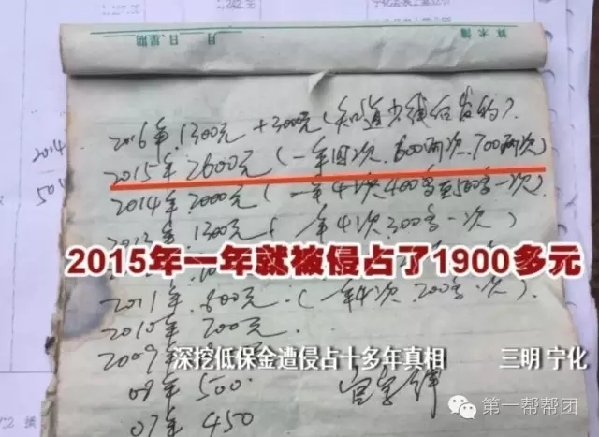 月 日 星期
2014
501
2016年.1300元+300元(知道少钱后发的?
2015年2600元(一年四次.600两次.700两次)
2014年.2000元(一年4次400多至500多一次)
2013年.1300元(一年4次300多一次)
2015年一年就被侵占了1900多元
2011年.800元.(一年4次.200多一次).
2010年.700元.
2009年
深挖低保金遭侵占十多年真相 三明 宁化
08年500.
07年450
第一帮帮团